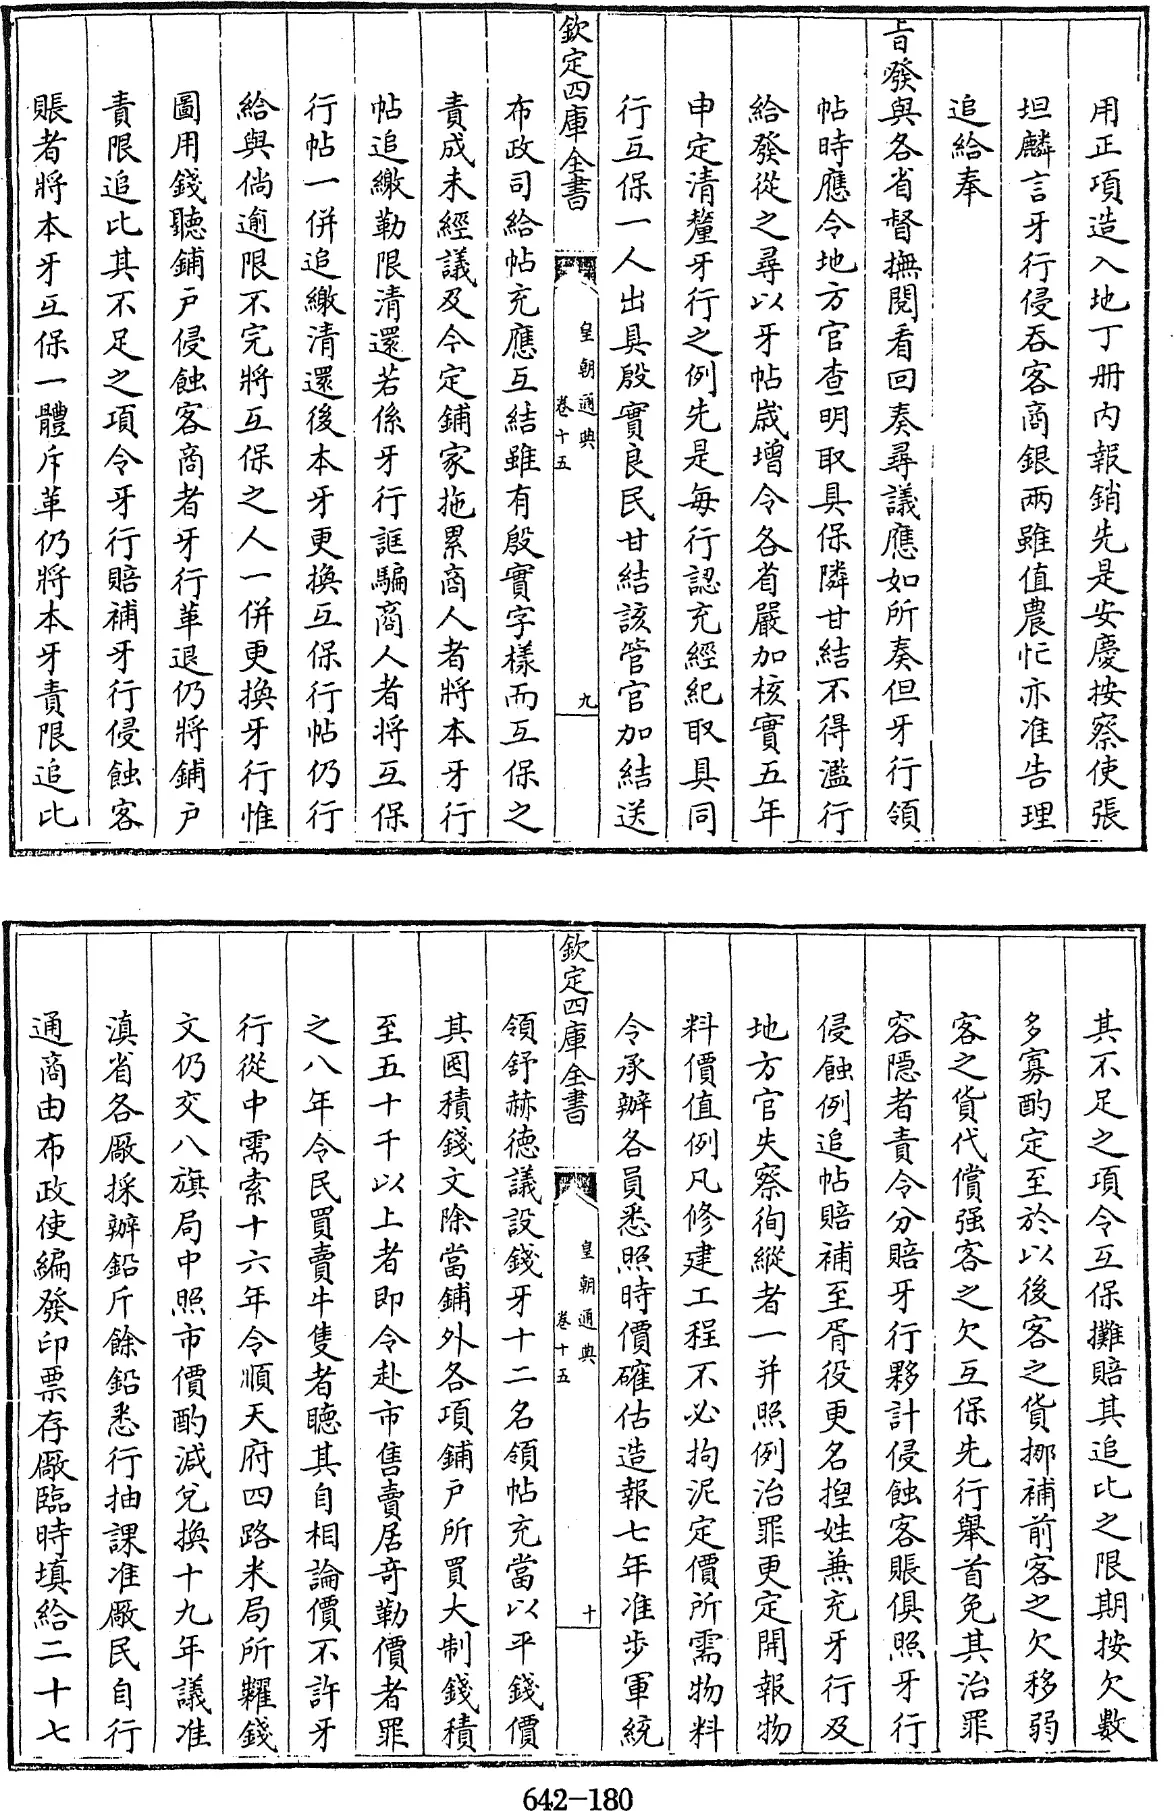 用正項造入地丁册内報銷先是安慶按察使張
坦麟言牙行侵吞客商銀兩雖值農忙亦准告理
追給奉
旨發與各省督撫閱看回奏尋議應如所奏但牙行領
帖時應令地方官查明取具保隣甘結不得濫行
給發從之尋以牙帖嵗增令各省嚴加核實五年
申定清釐牙行之例先是每行認充經紀取具同
行互保一人出具殷實良民甘結該管官加結送
欽定四庫全書
皇朝通典
卷十五
九
布政司給帖充應互結雖有殷實字樣而互保之
責成未經議及今定鋪家拖累商人者將本牙行
帖追繳勒限清還若係牙行誆騙商人者將互保
行帖一併追繳清還後本牙更換互保行帖仍行
給與倘逾限不完將互保之人一併更換牙行惟
圖用錢聽鋪户侵蝕客商者牙行革退仍將鋪户
責限追比其不足之項令牙行賠補牙行侵蝕客
賬者將本牙互保一體斥革仍將本牙責限追比
其不足之項令互保攤賠其追比之限期按欠數
多寡酌定至於以後客之貨挪補前客之欠移弱
客之貨代償强客之欠互保先行舉首免其治罪
容隱者責令分賠牙行夥計侵蝕客賬俱照牙行
侵蝕例追帖賠補至胥役更名揑姓兼充牙行及
地方官失察徇縱者一并照例治罪更定開報物
料價值例凡修建工程不必拘泥定價所需物料
令承辦各員悉照時價確估造報七年准步軍統
欽定四庫全書
皇朝通典
卷十五
十
領舒赫德議設錢牙十二名領帖充當以平錢價
其囤積錢文除當鋪外各項鋪户所買大制錢積
至五十千以上者即令赴市售賣居奇勒價者罪
之八年令民買賣牛隻者聽其自相論價不許牙
行從中需索十六年令順天府四路米局所糶錢
文仍交八旗局中照市價酌減兌換十九年議准
滇省各厰採辦鉛斤餘鉛悉行抽課准厰民自行
通商由布政使編發印票存厰臨時填給二十七
642-180